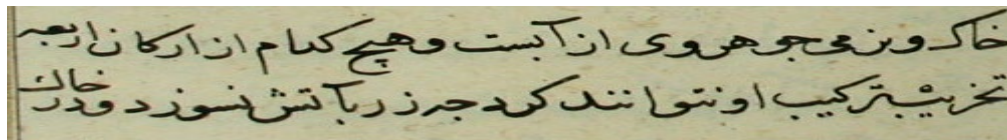 خاک و نرمی جوهر وی از آبست و هیچ کدام از ارکان اربعه
تخریب ترکیب او نتوانند کرد جه زر بآتش نسوزد و در خاک